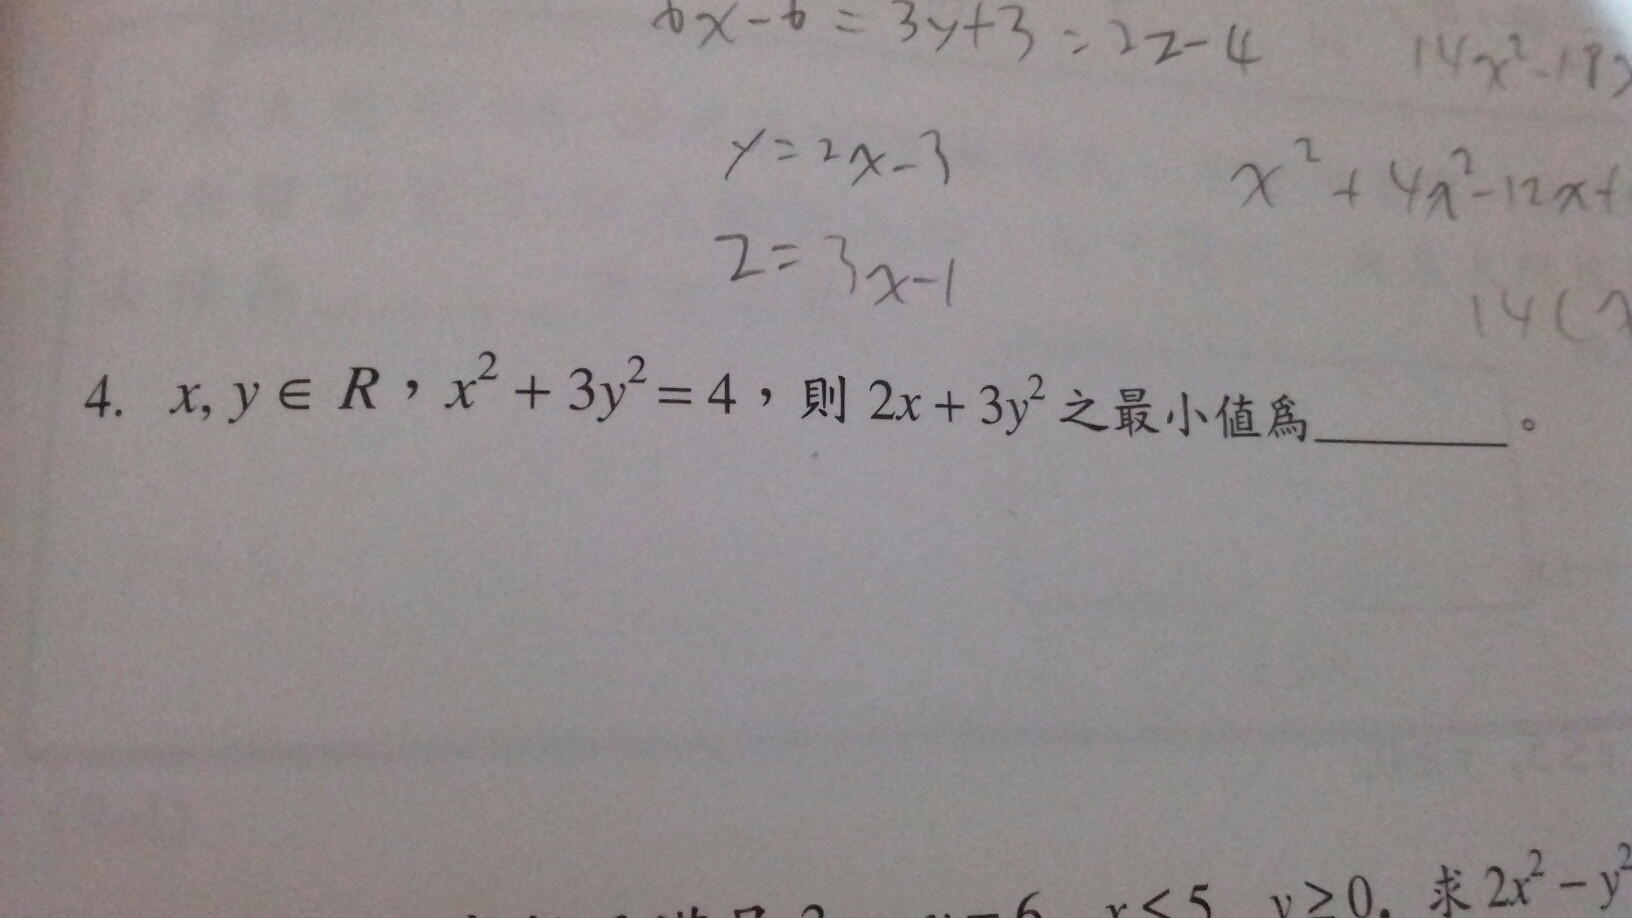 6x-6 = 3y+3 = 2z-4
14x²-18x
y=2x-3
x²+4x²-12x+
z=3x-1
14(x
4. x, y ∈ R，x² + 3y² = 4，則 2x + 3y² 之最小值為________。
x < 5 y ≥ 0, 求 2x² − y²